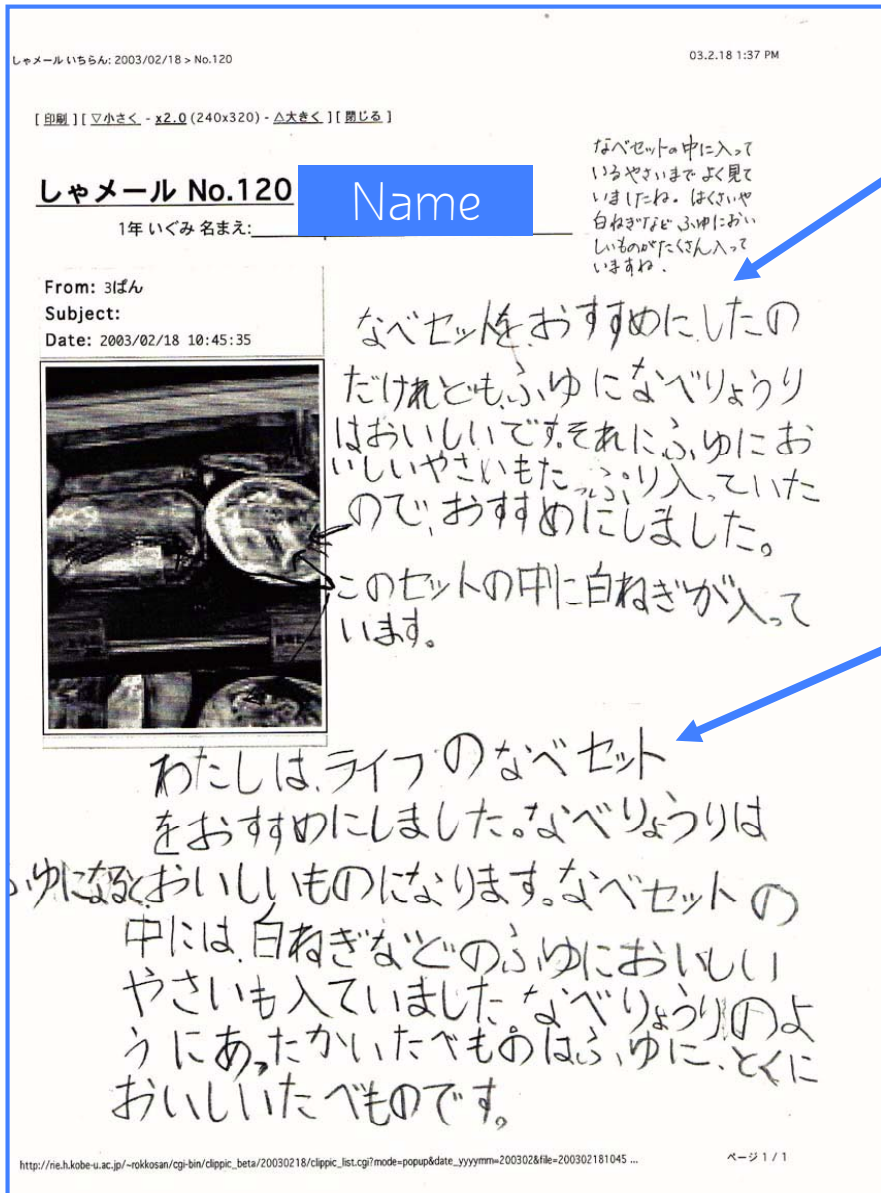 しゃメール いちらん: 2003/02/18 > No.120
03.2.18 1:37 PM
[ 印刷 ] [ ▽小さく - x2.0 (240x320) - △大きく ] [ 閉じる ]
なべセットの中に入って
いるやさいまでよく見て
いましたね。はくさいや
白ねぎなど ふゆにおい
しいものがたくさん入って
いますね。
しゃメール No.120
Name
1年 いぐみ 名まえ:
From: 3ぱん
Subject:
Date: 2003/02/18 10:45:35
なべセットを、おすすめに、したの
だけれども、ふゆになべりょうり
はおいしいです。それに、ふゆにお
いしいやさいもたっぷり入っていた
ので、おすすめにしました。
このセットの中に白ねぎが入って
います。
わたしは、ライフのなべセット
をおすすめにしました。なべりょうりは
ふゆになるとおいしいものになります。なべセットの
中には、白ねぎなどのふゆにおいしい
やさいも入ていました。なべりょうりのよ
うにあったかいたべものはふゆに、とくに
おいしいたべものです。
http://rie.h.kobe-u.ac.jp/~rokkosan/cgi-bin/clippic_beta/20030218/clippic_list.cgi?mode=popup&date_yyyymm=200302&file=200302181045 ...
ページ 1 / 1